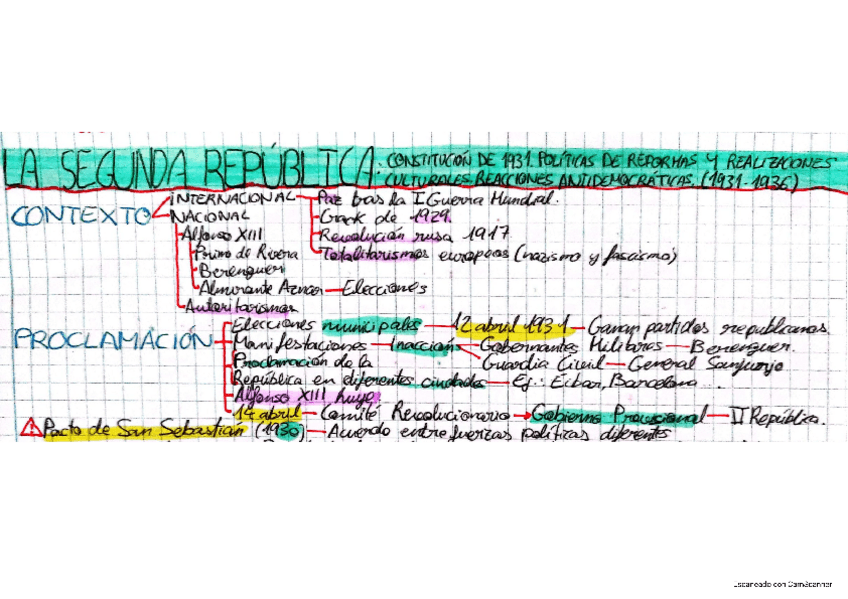 LA SEGUNDA REPÚBLICA: CONSTITUCIÓN DE 1931. POLÍTICAS DE REFORMAS Y REALIZACIONES
CULTURALES. REACCIONES ANTIDEMOCRÁTICAS. (1931-1936)
CONTEXTO
INTERNACIONAL - Paz tras la I Guerra Mundial.
- Crack de 1929.
- Revolución rusa 1917
- Totalitarismos europeos (nazismo y fascismo)
NACIONAL
Alfonso XIII
Primo de Rivera
Berenguer
Almirante Aznar - Elecciones
Autoritarismos
PROCLAMACIÓN
Elecciones municipales - 12 abril 1931 - Ganan partidos republicanos.
Manifestaciones - Inacción - Gobernantes Militares - Berenguer.
Guardia Civil - General Sanjurjo
Proclamación de la
República en diferentes ciudades - Ej: Eibar, Barcelona...
Alfonso XIII huye
14 abril - Comité Revolucionario → Gobierno Provisional - II República.
Pacto de San Sebastián (1930) - Acuerdo entre fuerzas políticas diferentes
Escaneado con CamScanner